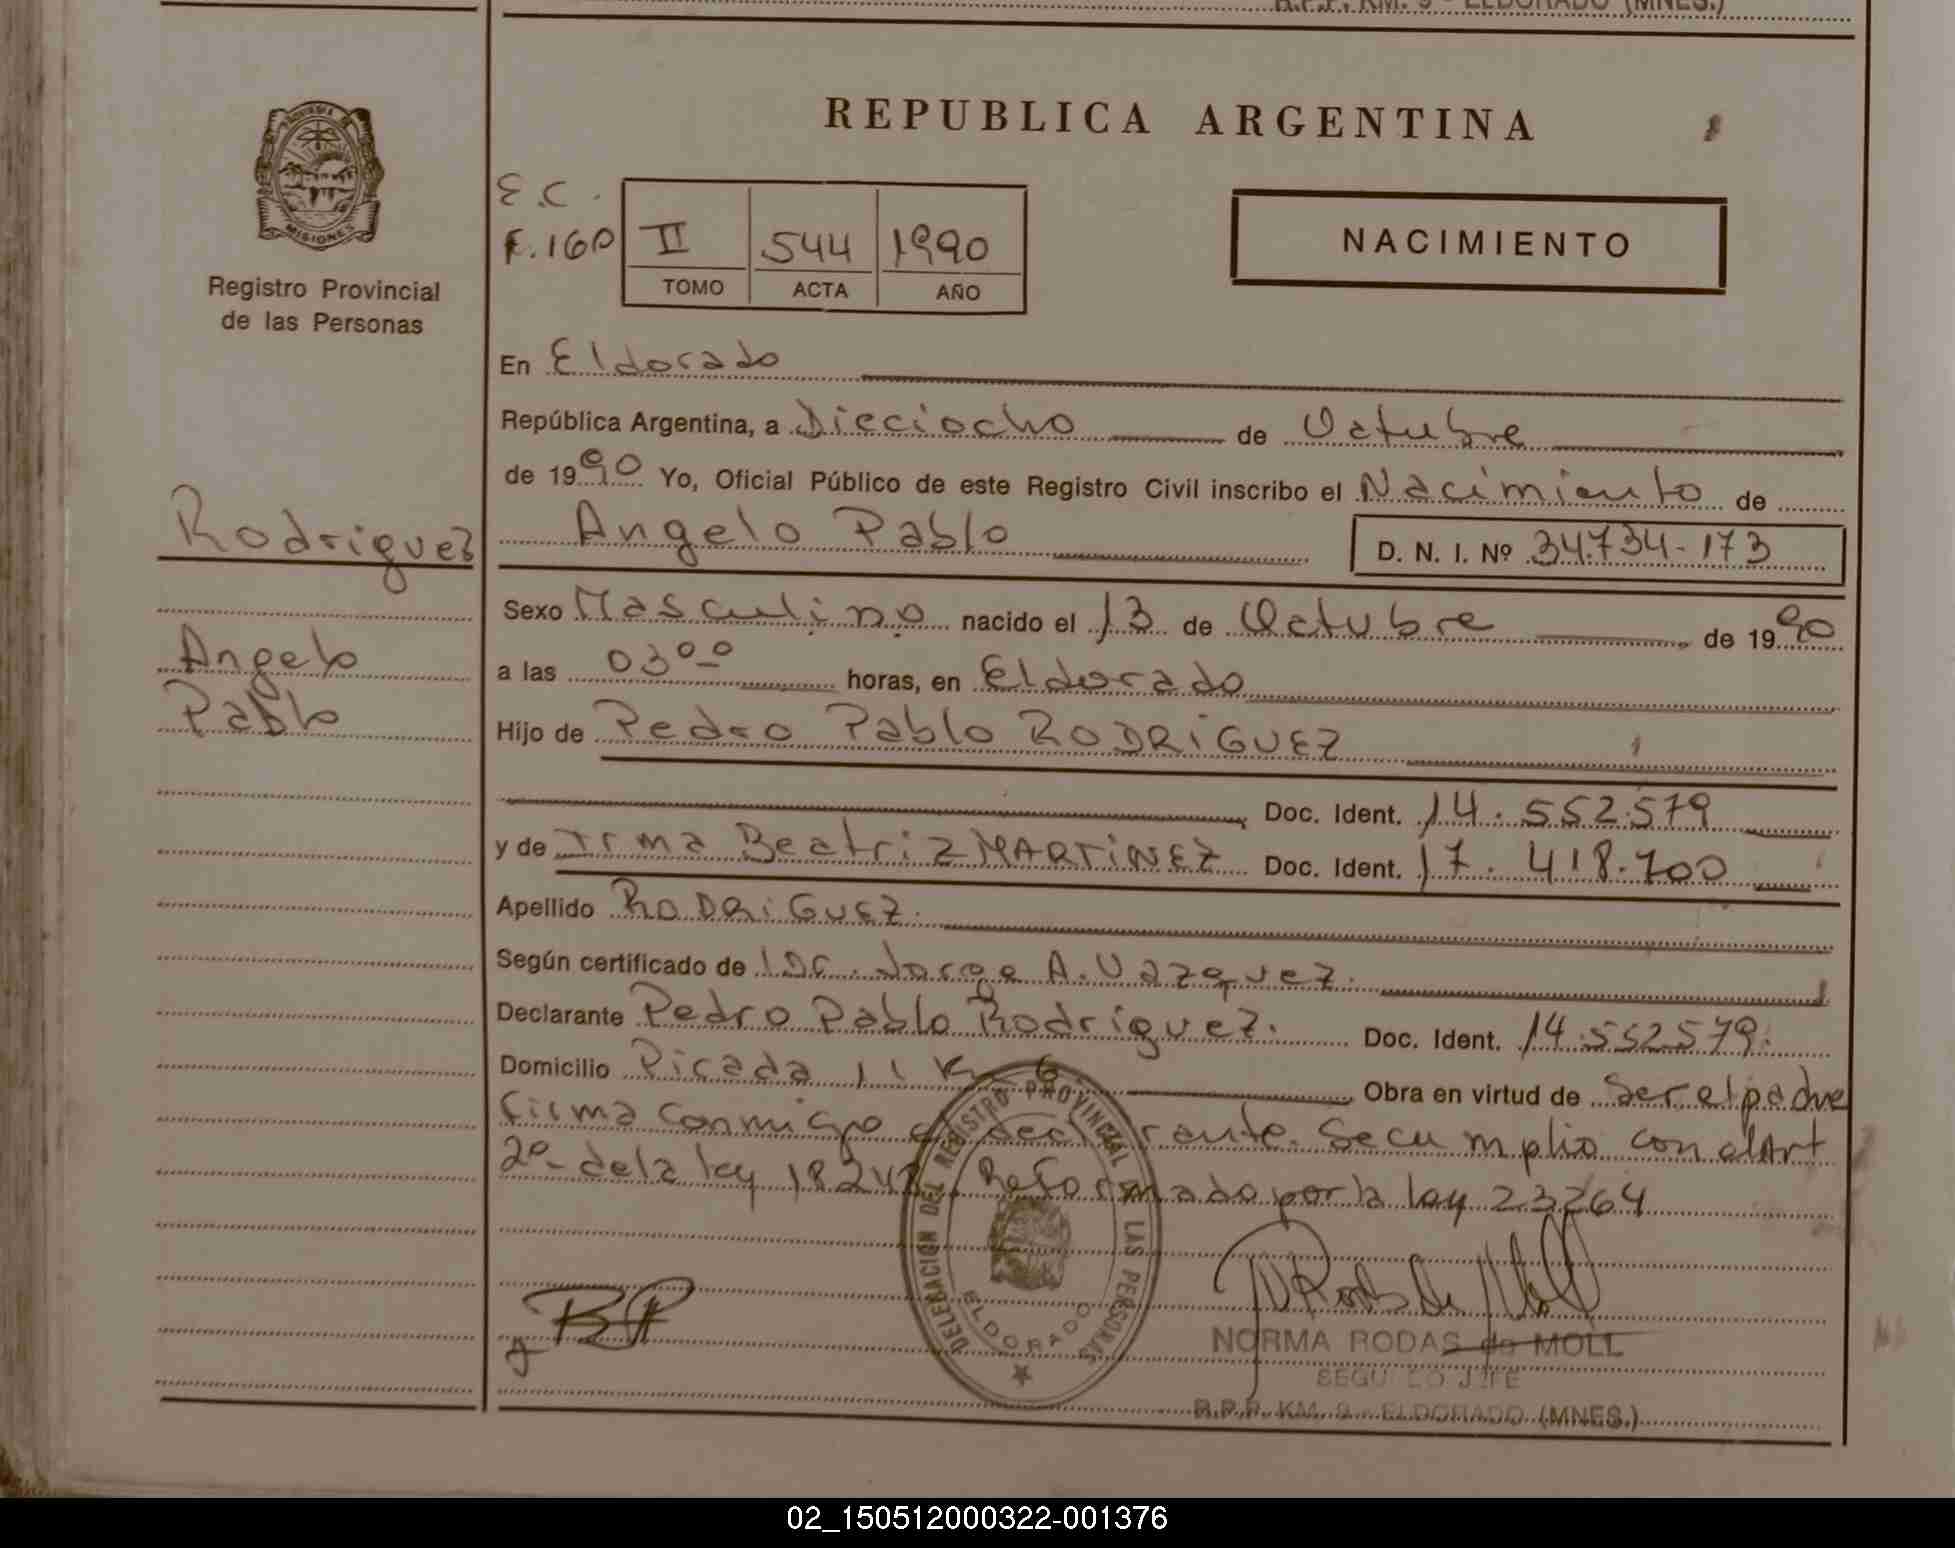 R.P.P. KM. 9 - ELDORADO (MNES.)
MISIONES
Registro Provincial
de las Personas
REPUBLICA ARGENTINA
E.C.
F. 160
II 544 1990
TOMO ACTA AÑO
NACIMIENTO
En Eldorado
República Argentina, a Dieciocho de Octubre
de 1990 Yo, Oficial Público de este Registro Civil inscribo el Nacimiento de
Rodriguez
Angelo Pablo D. N. I. Nº 34.734-173
Sexo Masculino nacido el 13 de Octubre de 1990
Angelo
a las 03 00 horas, en Eldorado
Pablo
Hijo de Pedro Pablo RODRIGUEZ
Doc. Ident. 14.552.579
y de Irma Beatriz MARTINEZ Doc. Ident. 17.418.700
Apellido RODRIGUEZ.
Según certificado de Dr. Jorge A. Vazquez.
Declarante Pedro Pablo Rodriguez. Doc. Ident. 14.552579.
Domicilio Picada 11 K 6 Obra en virtud de ser el padre
firma conmigo el declarante. Se cumplio con el Art
2º- de la ley 18248 Reformado por la ley 23264
DELEGACION DEL REGISTRO PROVINCIAL DE LAS PERSONAS
ELDORADO
NORMA RODAS de MOLL
SEGUNDO JEFE
R.P.P. KM. 9 - ELDORADO (MNES.)
02_150512000322-001376